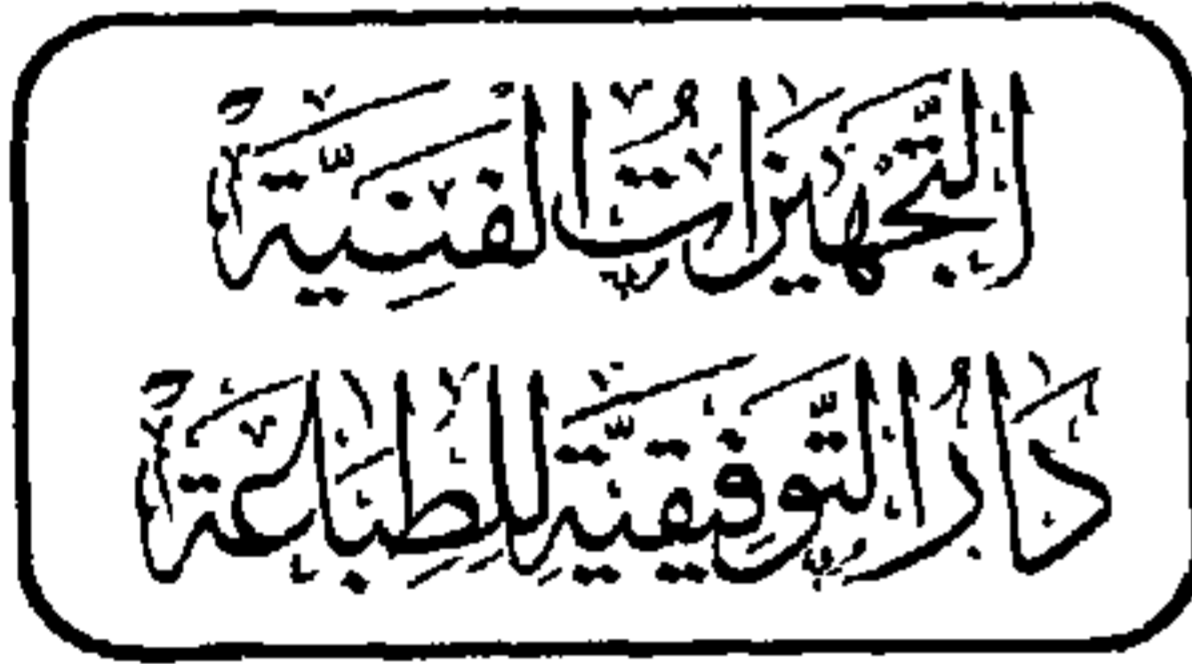 التَّجهيزَاتُ الفَنِيَّة
دَارُ التَّوفيقيَّة للِطِبَاعَة